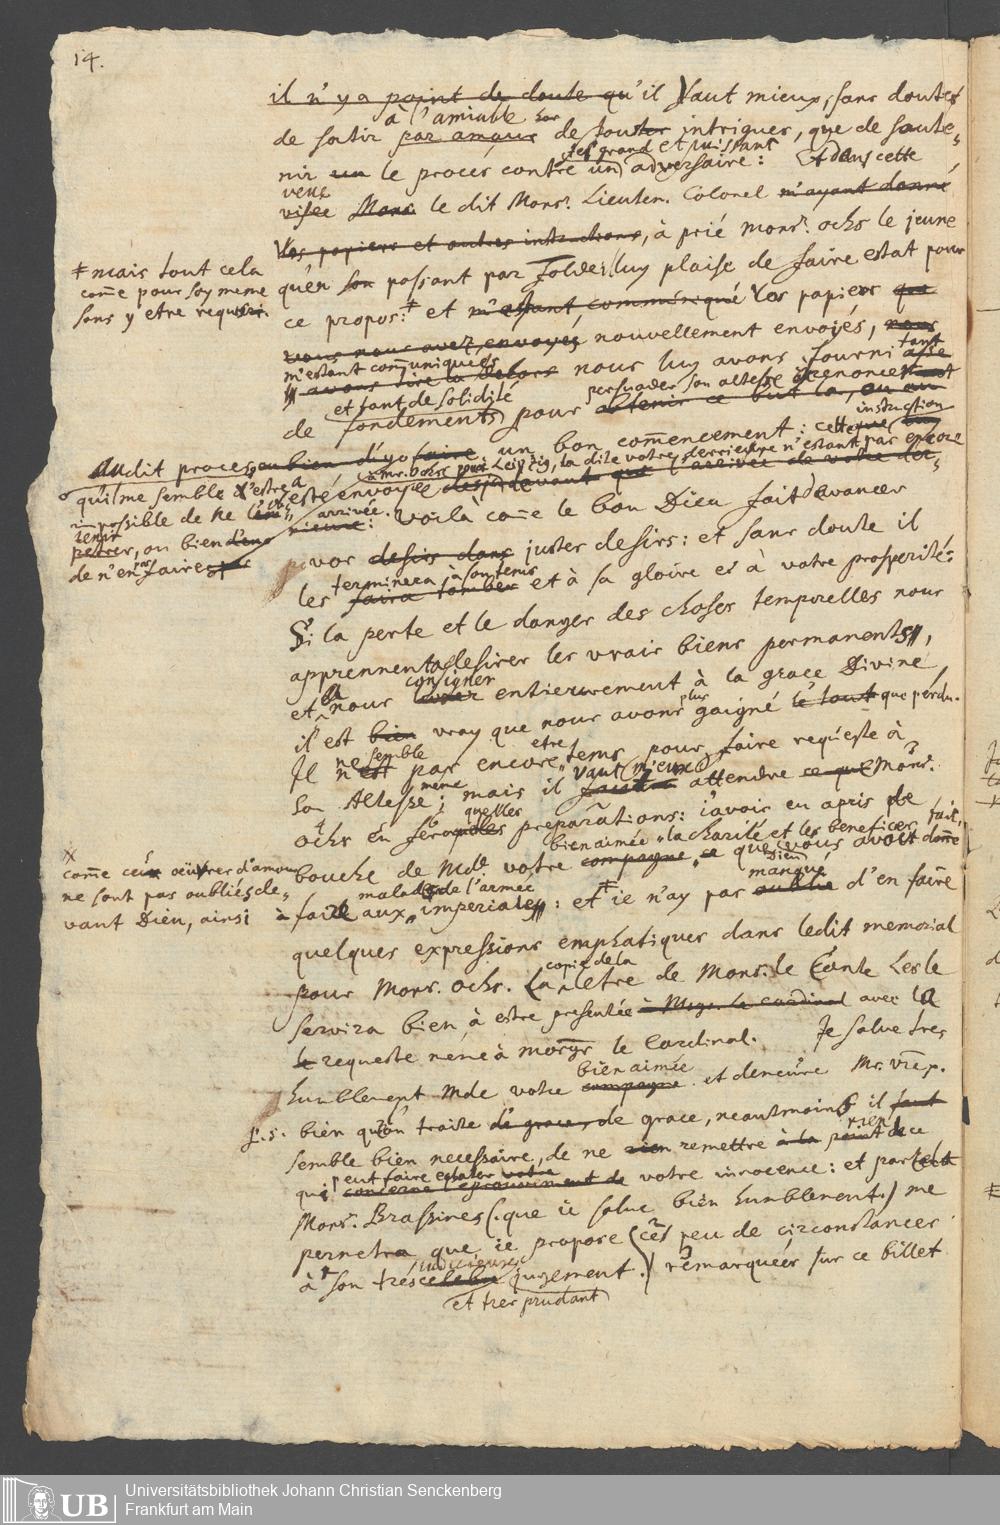 14.
il n'y a point de doute qu'il Vaut mieux, sans doutes
à l'amiable hor
de sortir par amour de toutes intrigues, que de soute„
tres grand et puissant
nir un le proces contre un adversaire: Et dans cette
veue
visée Mons. le dit Monsr. Lieuten. Colonel m'ayant donné
Vos papiers et autres instructions, à prié monsr. ochs le jeune
qu'en son passant par luy plaise de faire estat pour
mais tout cela
come pour soy meme
sans y etre requis
ce propos: et m'estant, communiqué Vos papiers que
vous nous avez, envoyés nouvellement envoyés, nous
m'estant communiquees tant
nous luy avons fourni
et tant de solidité persuader son altesse à renoncer
de fondements pour obtenir ce but la, ou au
instruction
Audit proces, ou bien d'y faire un bon commencement: cette
qu'il me semble d'estre
impossible de ne
tenir
petrer, ou bien
de n'en faire
à mr. pour Leipzig, la dite votre derriere n'estant par encore
esté envoyée desja devant que l'arrivée de votre der„
arrivée.
niere: Voilà come le bon Dieu fait devancer
vos desirs dans justes desirs: et sans doute il
terminera à son tems
les faira tomber et à sa gloire et à votre prosperité:
Si la perte et le danger des choses temporelles nous
apprennent à desirer les vrais biens permanents,
consigner
et à nous entierement à la grace Divine,
plus
il est bien vray que nous avons gaigné le tout que perdu.
ne semble etre
Il n'est pas encore tems pour faire requeste à
meme vaut mieux
son Altesse; mais il faut attendre ce que Monsr.
quelles
ochs en fera preparations: j'avois eu apris de
bien aimée la charité et les benefices fait,
bouche de Mde. votre compagne, ce que vous avoit donne
come ceux oeuvres d'amour
ne sont pas oubliés de„
vant Dieu, ainsi
malades de l'armee Dieu manqué
à faire aux imperiales: et ie n'ay pas oublié d'en faire
quelques expressions emphatiques dans ledit memorial
copie de la
pour Mons. ochs. La letre de Mons. le Conte Lesle
servira bien à estre presentée à Msgr. le cardinal avec la
le requeste meme à monsgr le Cardinal. Je salue tres
bien aimée
humblement Mde votre compagne et demeure Mr. vre p.
P.S. bien qu'on traite de graces, de grace, neautmoins il faut
rien
semble bien necessaire, de ne rien remettre à la point de ce
peut faire eclater votre
qui concerne l'eprouviment de votre innocence: et par
Monsr. Brassines (que ie salue bien humblement.) me
permetra que ie propose ces peu de circonstances
judicieux
à son tres celebre jugement. remarquées sur ce billet
et tres prudant
UB Universitätsbibliothek Johann Christian Senckenberg
Frankfurt am Main